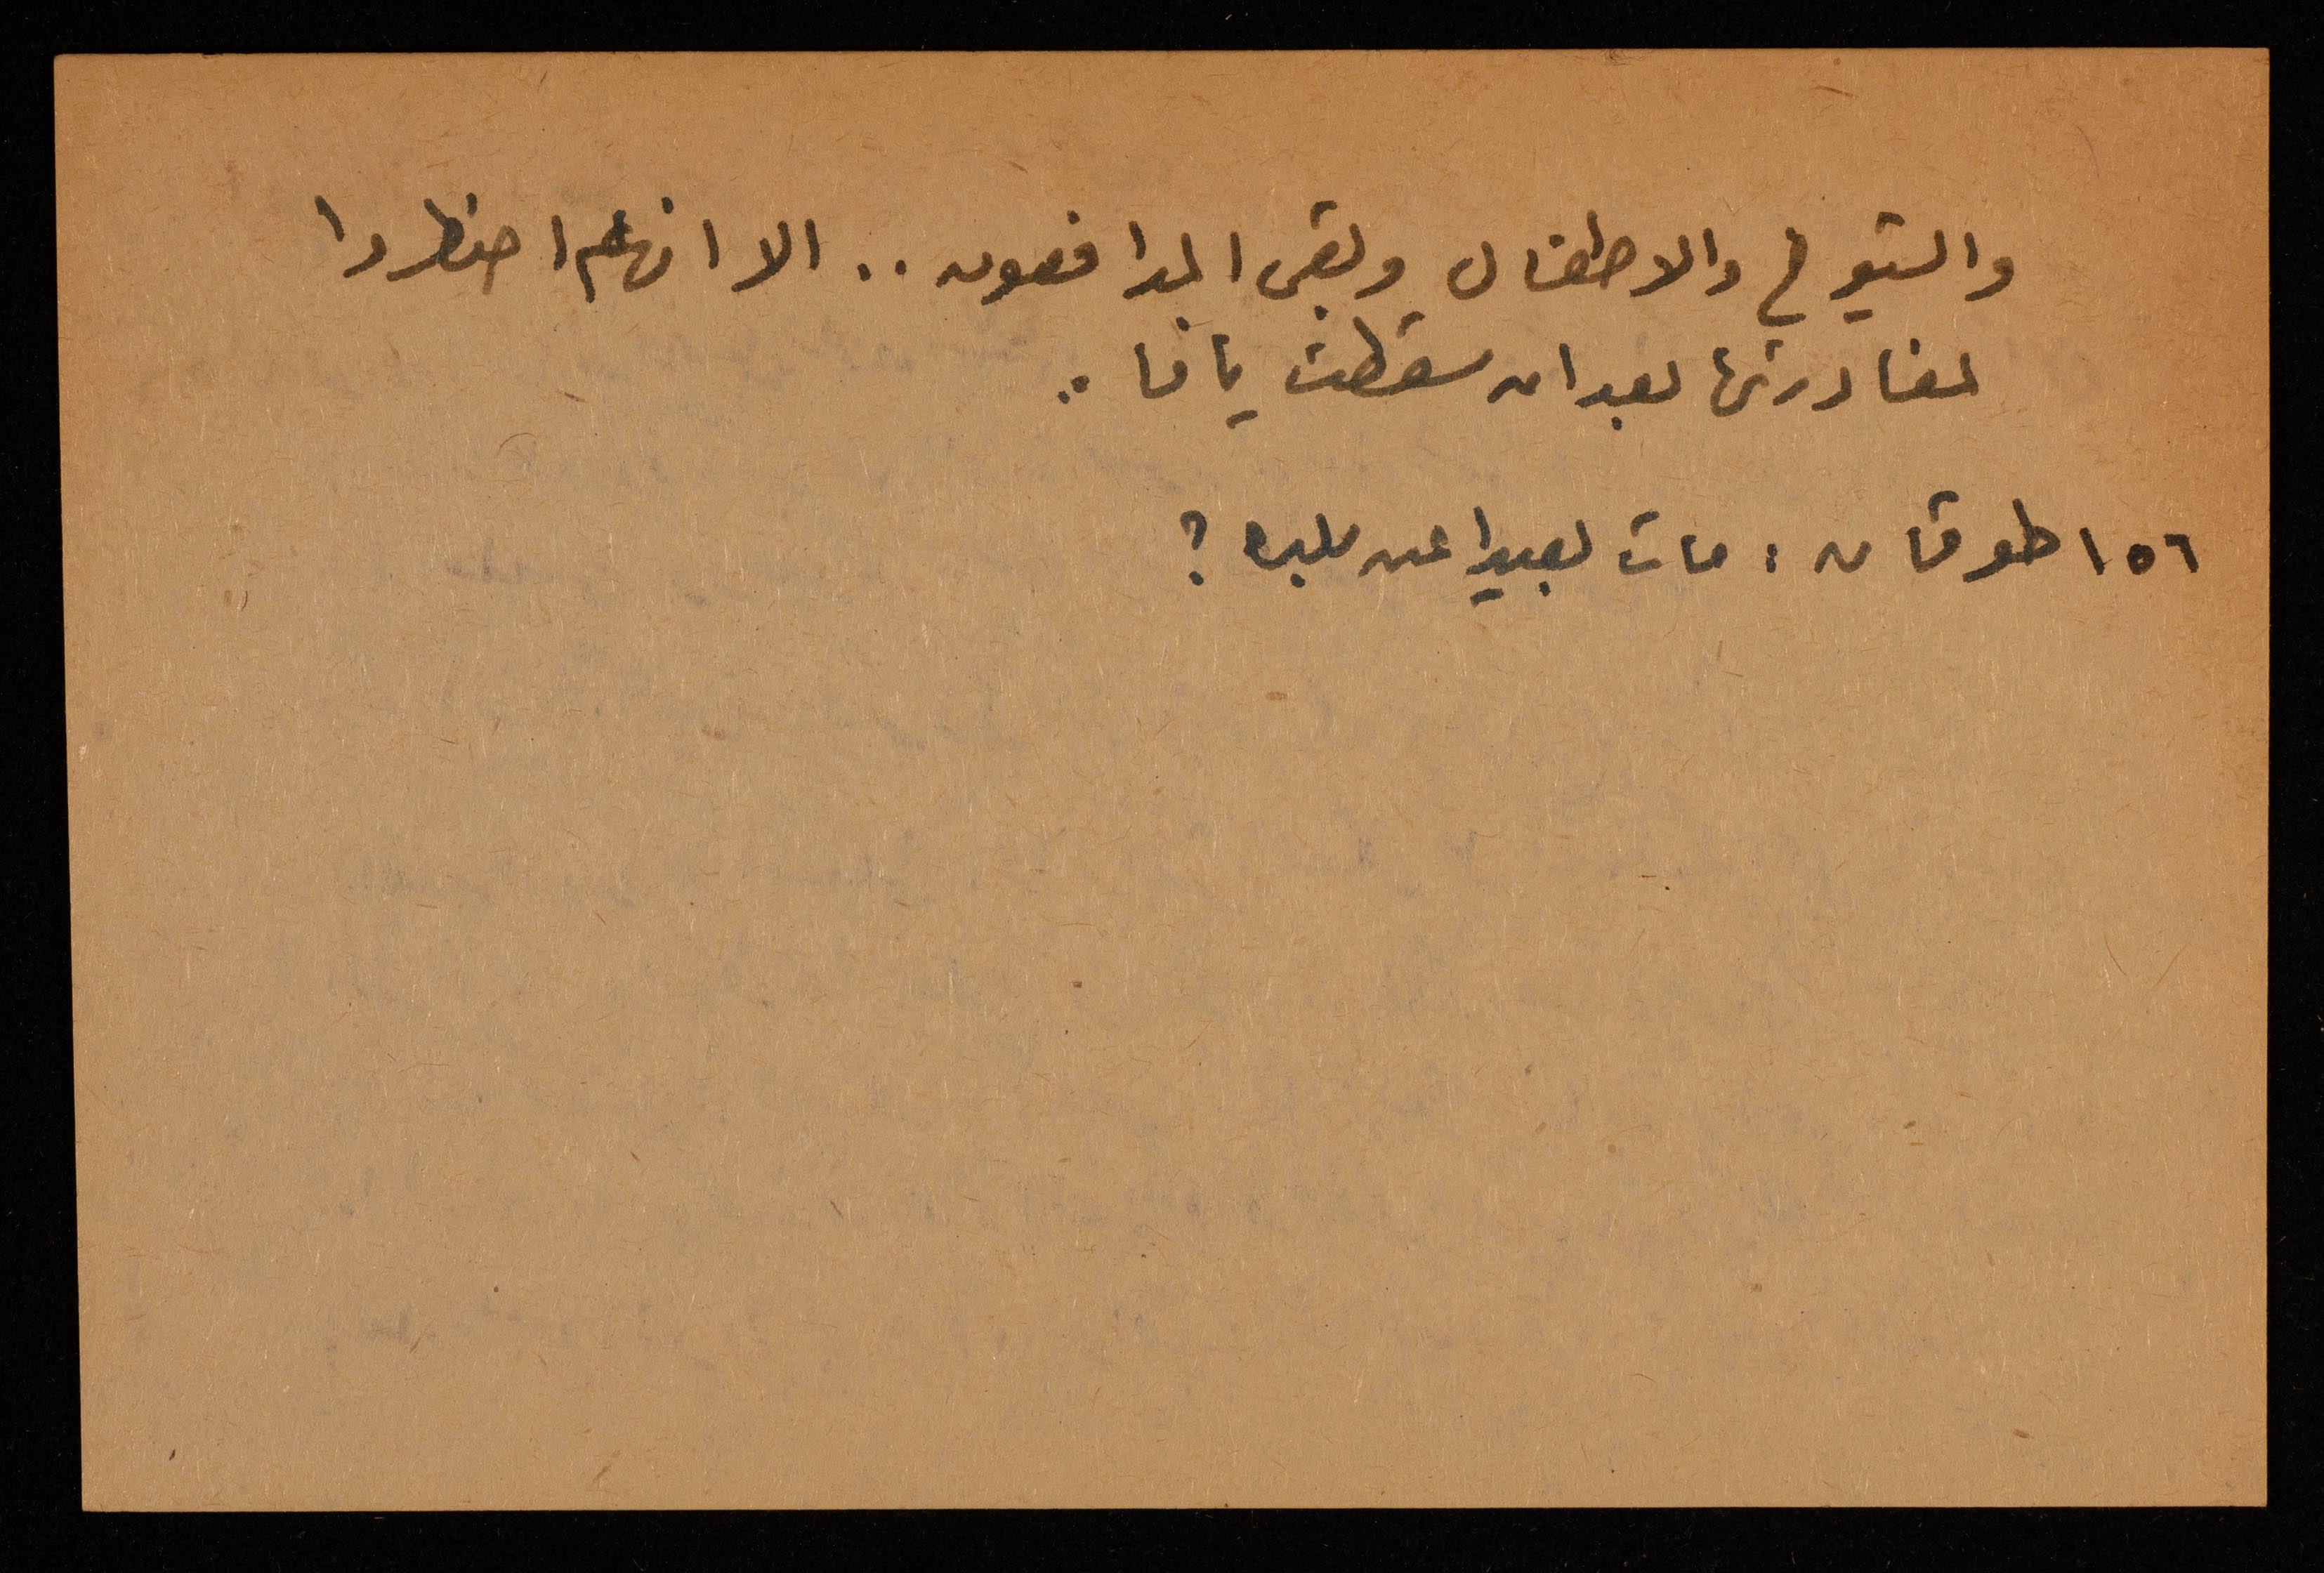 والشيوخ والاطفال وبقى المدافعون .. الا انهم اضطروا
لمغادرتها بعد ان سقطت يافا ..
١٥٦ طوقان : مات بعيدا عن بلده ؟